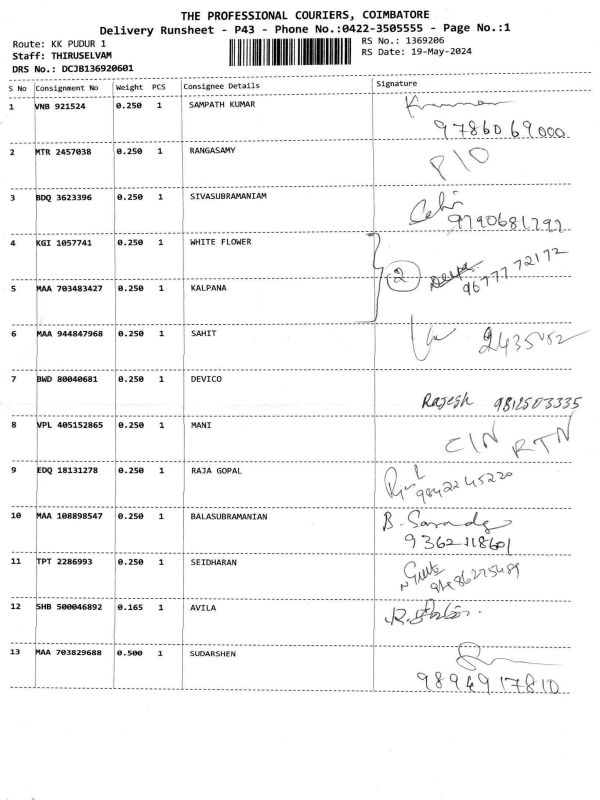 THE PROFESSIONAL COURIERS, COIMBATORE
Delivery Runsheet - P43 - Phone No.:0422-3505555 - Page No.:1
Route: KK PUDUR 1
RS No.: 1369206
Staff: THIRUSELVAM
RS Date: 19-May-2024
DRS No.: DCJB136920601
S No Consignment No Weight PCS Consignee Details Signature
1 VNB 921524 0.250 1 SAMPATH KUMAR
9786069000
2 MTR 2457038 0.250 1 RANGASAMY P/O
3 BDQ 3623396 0.250 1 SIVASUBRAMANIAM
9790681792
4 KGI 1057741 0.250 1 WHITE FLOWER
2 9677772172
5 MAA 703483427 0.250 1 KALPANA
6 MAA 944847968 0.250 1 SAHIT
7 BWD 80040681 0.250 1 DEVICO
Rajesh 9812503335
8 VPL 405152865 0.250 1 MANI
C/N RTN
9 EDQ 18131278 0.250 1 RAJA GOPAL
9842245220
10 MAA 108898547 0.250 1 BALASUBRAMANIAN
B.
11 TPT 2286993 0.250 1 SEIDHARAN
12 SHB 500046892 0.165 1 AVILA
13 MAA 703829688 0.500 1 SUDARSHEN
9894917810